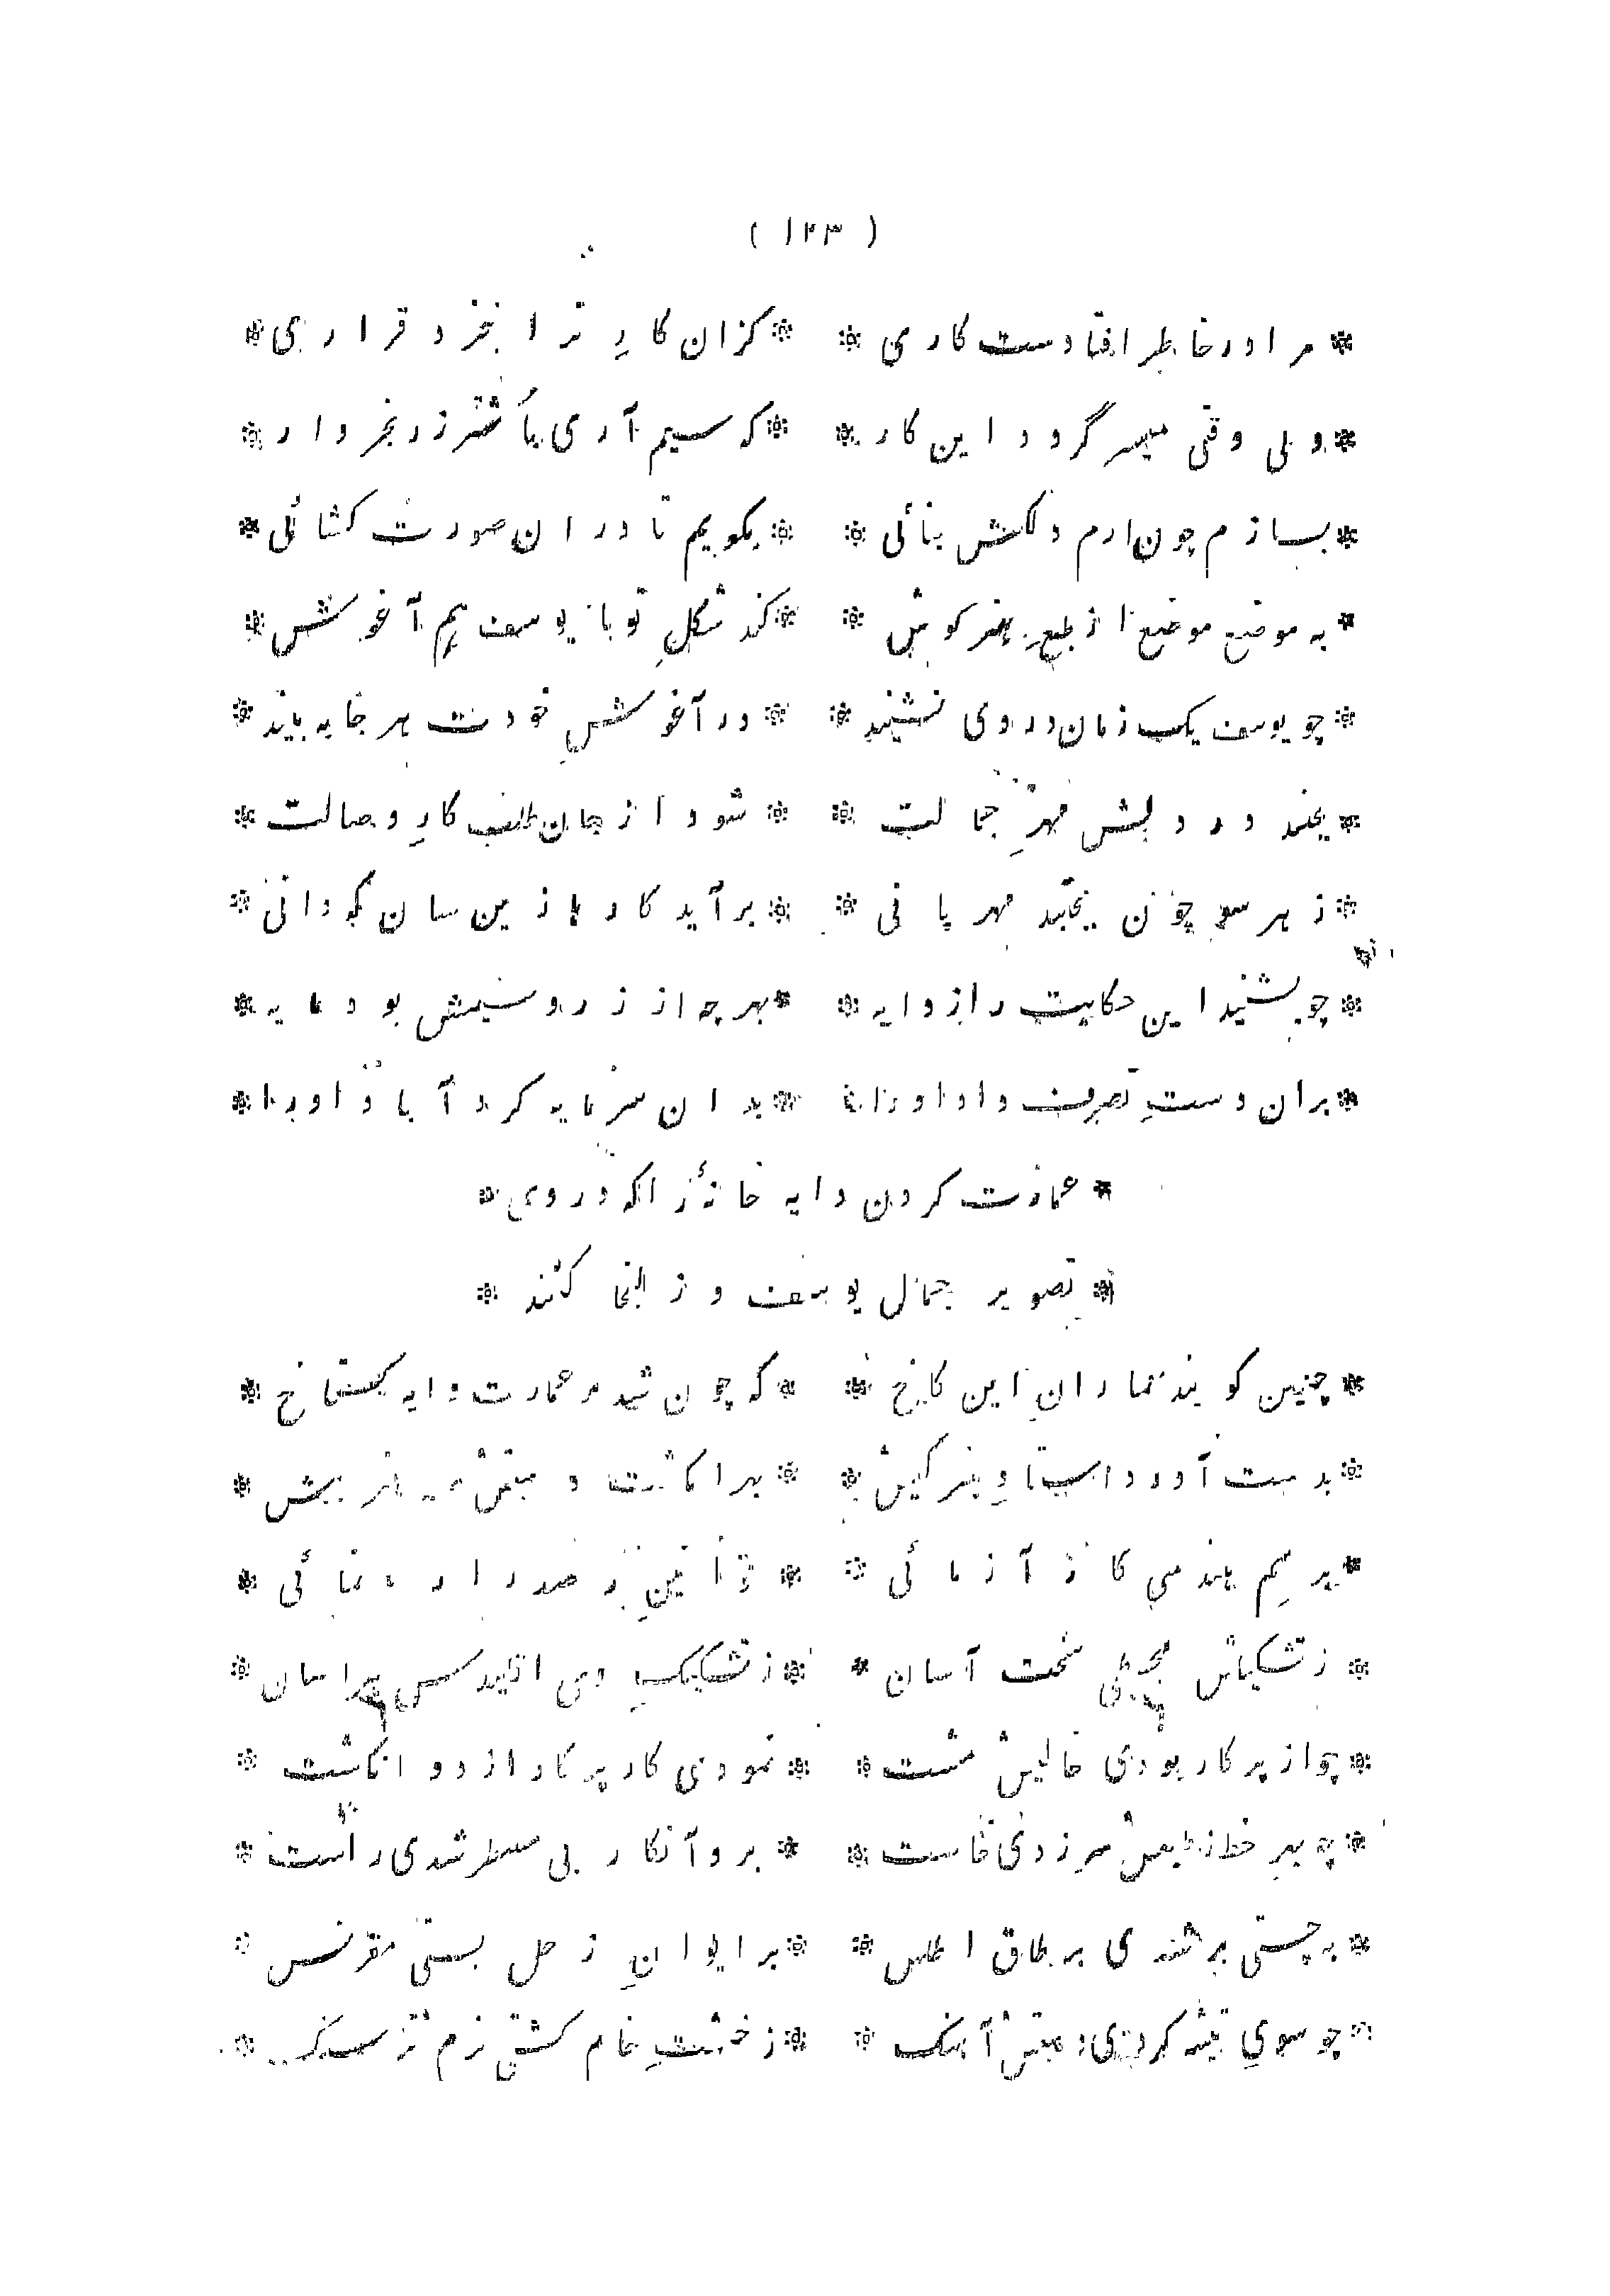 ( ۱۲۳ )
* مرا در خاطر افتادست کاری * کزان کار ترا بخزد قراری *
* ولی وقتی میسر گردد این کار * که سیم آری باشتر زر بخروار *
* بسازم چون ارم دلکش بنائی * بگویم تا دران صورت کشائی *
* به موضع موضع از طبع هنر کوش * کند شکل تو با یوسف هم آغوش *
* چو یوسف یک زمان در وی نشیند * در آغوش خودت هر جا به بیند *
* بجنبد در دلش مهر جمالت * شود از جان طلب کار وصالت *
* ز هر سو چون بجنبد مهربانی * برآید کارها زین سان که دانی *
* چو بشنید این حکایت را ز دایه * بهر چه از زر و سیمش بود مایه *
* بران دست تصرف داد او را * بدان سرمایه کرد آباد او را *
* عمارت کردن دایه خانه را که در وی *
* تصویر جمال یوسف و زلیخا کنند *
* چنین گویند معماران این کاخ * که چون شد بر عمارت دایه گستاخ *
* بدست آورد استاد هنر کیش * بهر انگشت دستش هنر بیش *
* برسم هندسی کار آزمائی * قوانین رصد را رهنمائی *
* ز تشکیلش مجسطی سخت آسان * ز تشکیک وی اقلیدس هراسان *
* چو از پرکار بودی خالیش مشت * نمودی کار پرکار از دو انگشت *
* چو بهر خط ز طبعش سر زدی خاست * برو آن کار بی مسطر شدی راست *
* به چستی بر شدی بر طاق اطلس * بر ایوان زحل بستی مقرنس *
* چو سوی تیشه کردی دستش آهنگ * ز خشت خام گشتی نرم تر سنگ *